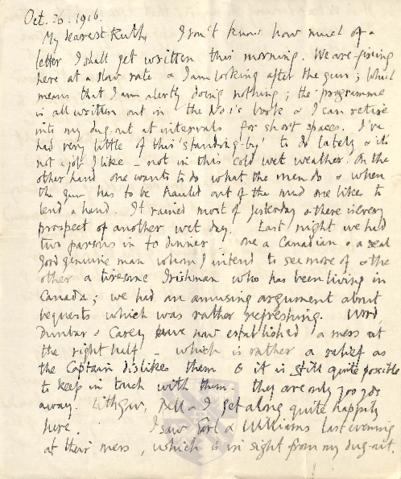 Oct. 26. 1916.
My dearest Ruth, I don't know how much of a
letter I shall get written this morning. We are firing
here at a slow rate & I am looking after the guns; which
means that I am alertly doing nothing; the programme
is all written out in the No 1's book & I can retire
into my dug-out at intervals for short spaces. I've
had very little of this 'standing-by' to do lately & it's
not a job I like – not in this cold wet weather. On the
other hand one wants to do what the men do & when
the gun has to be hauled out of the mud one likes to
lend a hand. It rained most of yesterday & there is every
prospect of another wet day. Last night we had
two parsons in to dinner – one a Canadian & a real
good genuine man whom I intend to see more of & the
other a tiresome Irishman who has been living in
Canada; we had an amusing argument about
bequests which was rather refreshing. Word
Dunbar & Carey have now established a mess at
the right half – which is rather a relief as
the Captain dislikes them & it is still quite possible
to keep in touch with them – they are only 200 yds
away. Lithgow, Bell & I get along quite happily
here. I saw & Williams last evening
at their mess, which is in sight from my dug-out.